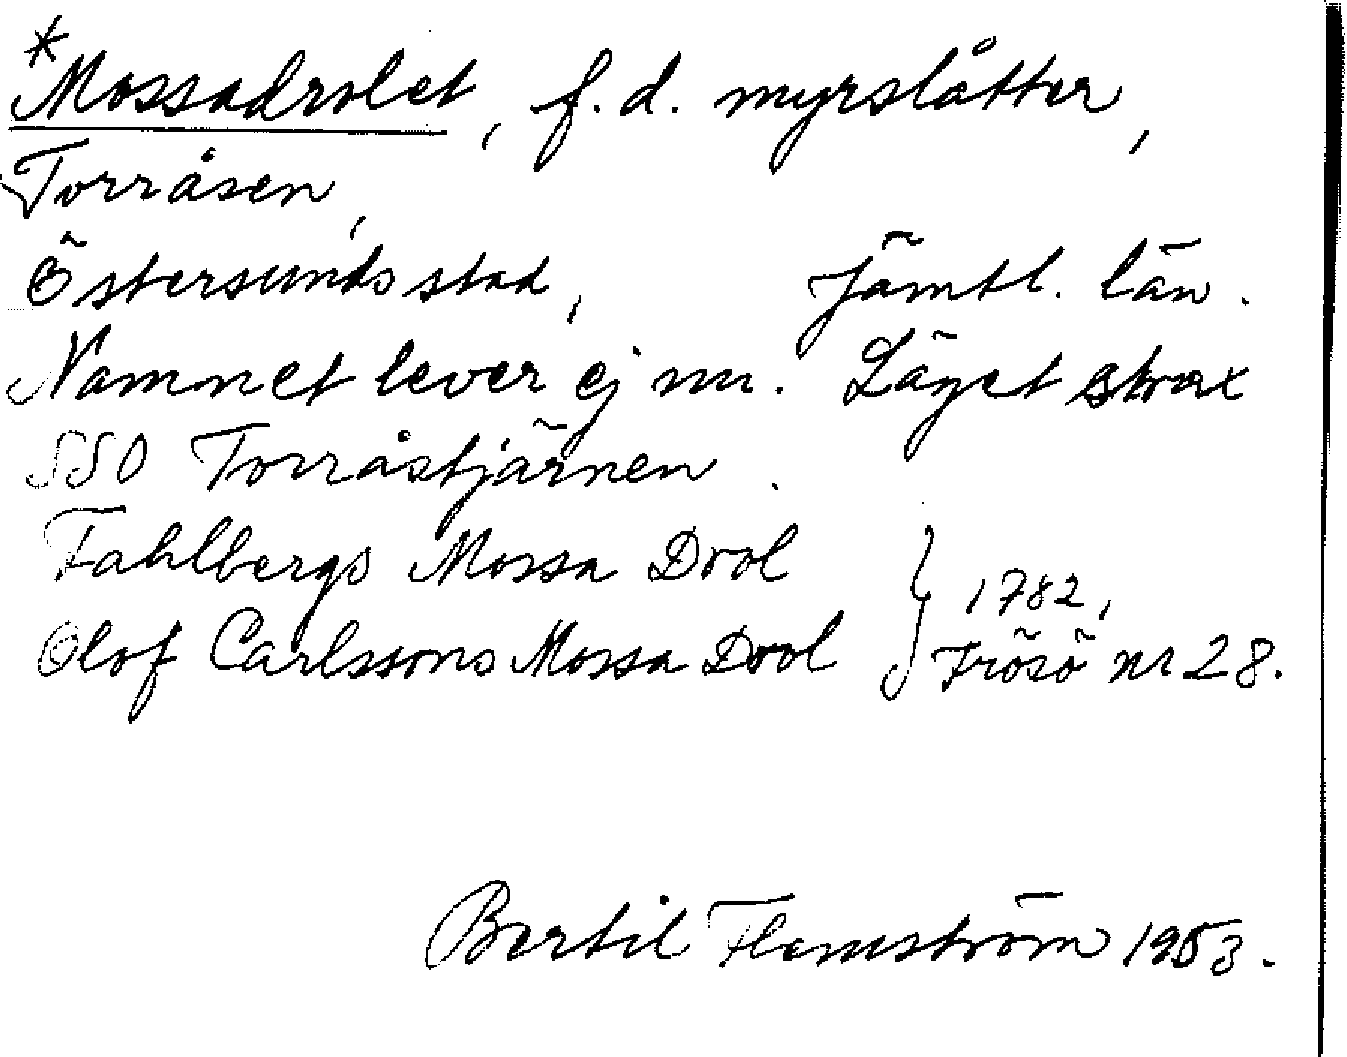 *Mossadrolet, f.d. myrslåtter,
Torråsen,
Östersunds stad, Jämtl. län.
Namnet lever ej nu. Läget strax
SSO Torråstjärnen.
Fahlbergs Mossa Drol
Olof Carlssons Mossa Drol } 1782, Frösö nr 28.
Bertil Flemström 1953.